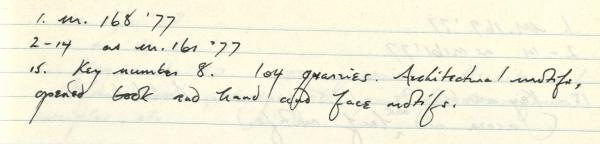 1. m. 168 '77
2-14 as m. 161 '77
15. Key number 8. 104 quarries. Architectural motifs,
opened book and hand and face motifs.